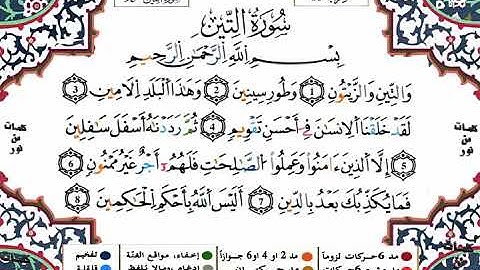 سُورَةُ التِّينِ
بِسْمِ اللَّهِ الرَّحْمَٰنِ الرَّحِيمِ
وَالتِّينِ وَالزَّيْتُونِ ① وَطُورِ سِينِينَ ② وَهَٰذَا الْبَلَدِ الْأَمِينِ ③
لَقَدْ خَلَقْنَا الْإِنسَانَ فِي أَحْسَنِ تَقْوِيمٍ ④ ثُمَّ رَدَدْنَاهُ أَسْفَلَ سَافِلِينَ
⑤ إِلَّا الَّذِينَ ءَامَنُوا وَعَمِلُوا الصَّالِحَاتِ فَلَهُمْ أَجْرٌ غَيْرُ مَمْنُونٍ ⑥
فَمَا يُكَذِّبُكَ بَعْدُ بِالدِّينِ ⑦ أَلَيْسَ اللَّهُ بِأَحْكَمِ الْحَاكِمِينَ ⑧
كلمات
من
نور
كلمات
من
نور
مد 6 حركات لزوماً مد 2 أو 4 أو 6 جوازاً إخفاء، مواقع الغنة تفخيم
قلقلة